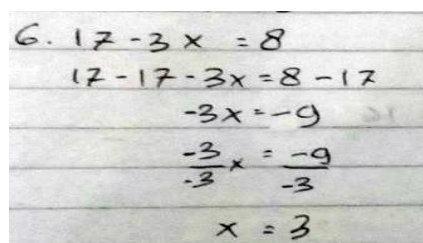 6. 17 - 3x = 8
17 - 17 - 3x = 8 - 17
-3x = -9
-3/-3 x = -9/-3
x = 3